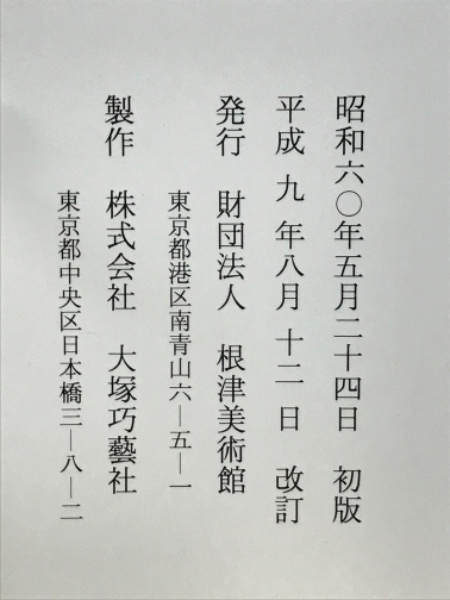 昭和六〇年五月二十四日　初版
平成九年八月十二日　改訂
発行　財団法人　根津美術館
東京都港区南青山六―五―一
製作　株式会社　大塚巧藝社
東京都中央区日本橋三―八―二